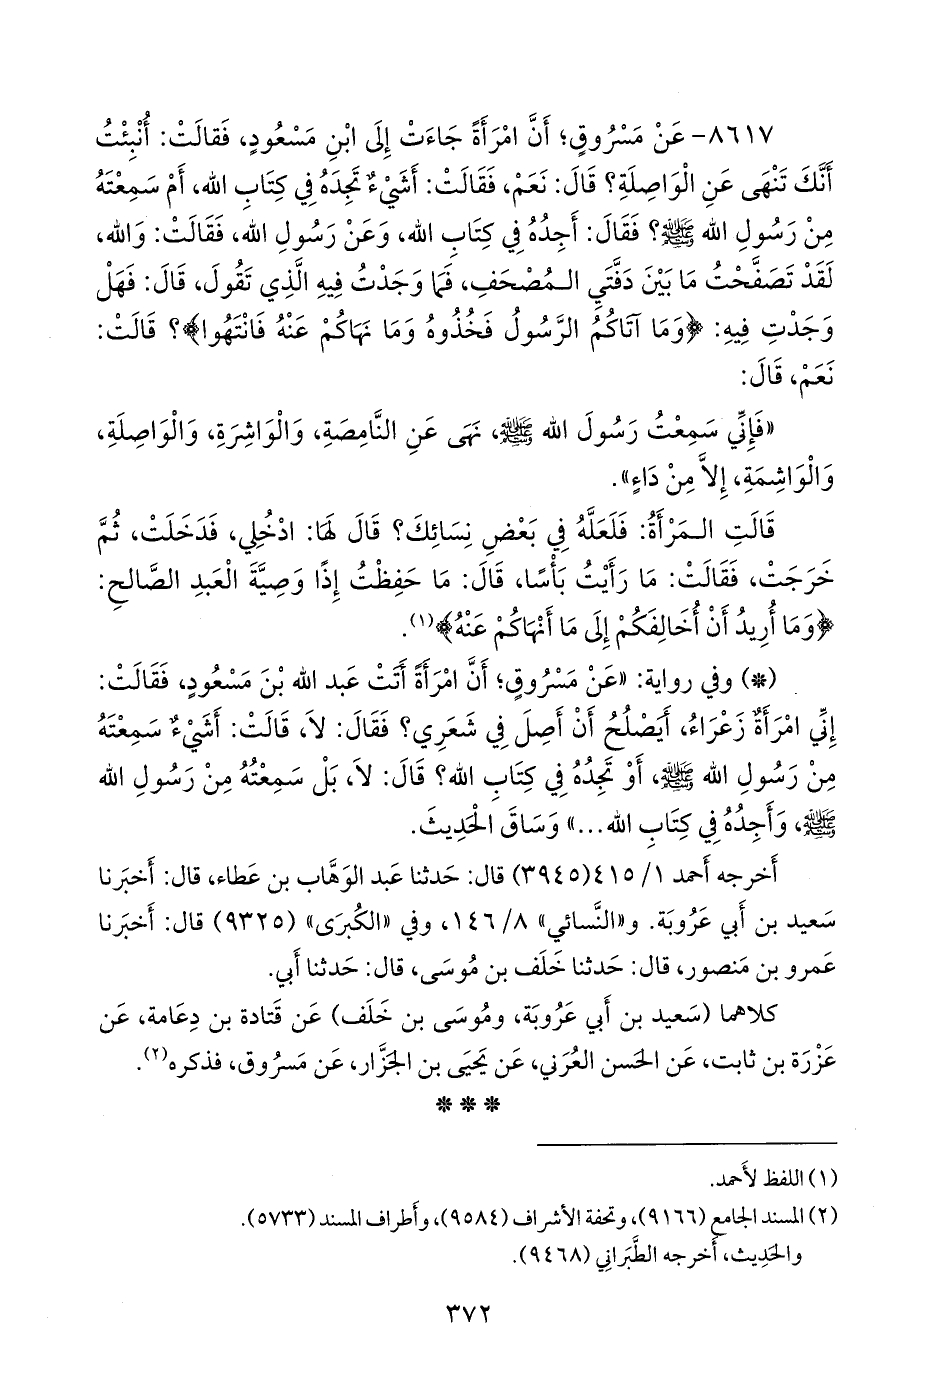 ٨٦١٧- عَنْ مَسْرُوقٍ؛ أَنَّ امْرَأَةً جَاءَتْ إِلَى ابْنِ مَسْعُودٍ، فَقالَتْ: أُنْبِئْتُ
أَنَّكَ تَنْهَى عَنِ الْوَاصِلَةِ؟ قَالَ: نَعَمْ، فَقَالَتْ: أَشَيْءٌ تَجِدُهُ فِي كِتَابِ الله، أَمْ سَمِعْتَهُ
مِنْ رَسُولِ الله ﷺ؟ فَقَالَ: أَجِدُهُ فِي كِتَابِ الله، وَعَنْ رَسُولِ الله، فَقَالَتْ: وَالله،
لَقَدْ تَصَفَّحْتُ مَا بَيْنَ دَفَّتَيِ الـمُصْحَفِ، فَمَا وَجَدْتُ فِيهِ الَّذِي تَقُولُ، قَالَ: فَهَلْ
وَجَدْتِ فِيهِ: ﴿وَمَا آتَاكُمُ الرَّسُولُ فَخُذُوهُ وَمَا نَهَاكُمْ عَنْهُ فَانْتَهُوا﴾؟ قَالَتْ:
نَعَمْ، قَالَ:
«فَإِنِّي سَمِعْتُ رَسُولَ الله ﷺ، نَهَى عَنِ النَّامِصَةِ، وَالْوَاشِرَةِ، وَالْوَاصِلَةِ،
وَالْوَاشِمَةِ، إِلاَّ مِنْ دَاءٍ».
قَالَتِ الـمَرْأَةُ: فَلَعَلَّهُ فِي بَعْضِ نِسَائِكَ؟ قَالَ لَهَا: ادْخُلِي، فَدَخَلَتْ، ثُمَّ
خَرَجَتْ، فَقَالَتْ: مَا رَأَيْتُ بَأْسًا، قَالَ: مَا حَفِظْتُ إِذًا وَصِيَّةَ الْعَبدِ الصَّالحِ:
﴿وَمَا أُرِيدُ أَنْ أُخَالِفَكُمْ إِلَى مَا أَنْهَاكُمْ عَنْهُ﴾(١).
(*) وفي رواية: «عَنْ مَسْرُوقٍ؛ أَنَّ امْرَأَةً أَتَتْ عَبد الله بْنَ مَسْعُودٍ، فَقَالَتْ:
إِنِّي امْرَأَةٌ زَعْرَاءُ، أَيَصْلُحُ أَنْ أَصِلَ فِي شَعَرِي؟ فَقَالَ: لاَ، قَالَتْ: أَشَيْءٌ سَمِعْتَهُ
مِنْ رَسُولِ الله ﷺ، أَوْ تَجِدُهُ فِي كِتَابِ الله؟ قَالَ: لاَ، بَلْ سَمِعْتُهُ مِنْ رَسُولِ الله
ﷺ، وَأَجِدُهُ فِي كِتَابِ الله...» وَسَاقَ الْحَدِيثَ.
أَخرجه أَحمد ١/ ٤١٥(٣٩٤٥) قال: حَدثنا عَبد الوَهَّاب بن عَطاء، قال: أَخبَرنا
سَعيد بن أَبي عَرُوبَة. و«النَّسائي» ٨/ ١٤٦، وفي «الكُبرَى» (٩٣٢٥) قال: أَخبَرنا
عَمرو بن مَنصور، قال: حَدثنا خَلَف بن مُوسَى، قال: حَدثنا أَبي.
كلاهما (سَعيد بن أَبي عَرُوبَة، ومُوسَى بن خَلَف) عَن قَتادة بن دِعَامة، عَن
عَزْرَة بن ثابت، عَن الحَسن العُرَني، عَن يَحيَى بن الجَزَّار، عَن مَسرُوق، فذكره(٢).
* * *
(١) اللفظ لأَحمد.
(٢) المسند الجامع (٩١٦٦)، وتحفة الأشراف (٩٥٨٤)، وأَطراف المسند (٥٧٣٣).
والحَدِيث، أَخرجه الطَّبَراني (٩٤٦٨).
٣٧٢